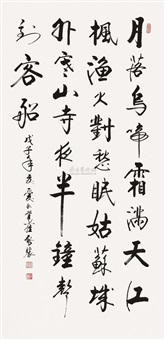 月落烏啼霜滿天江
楓漁火對愁眠姑蘇城
外寒山寺夜半鐘聲
到客船
戊子年